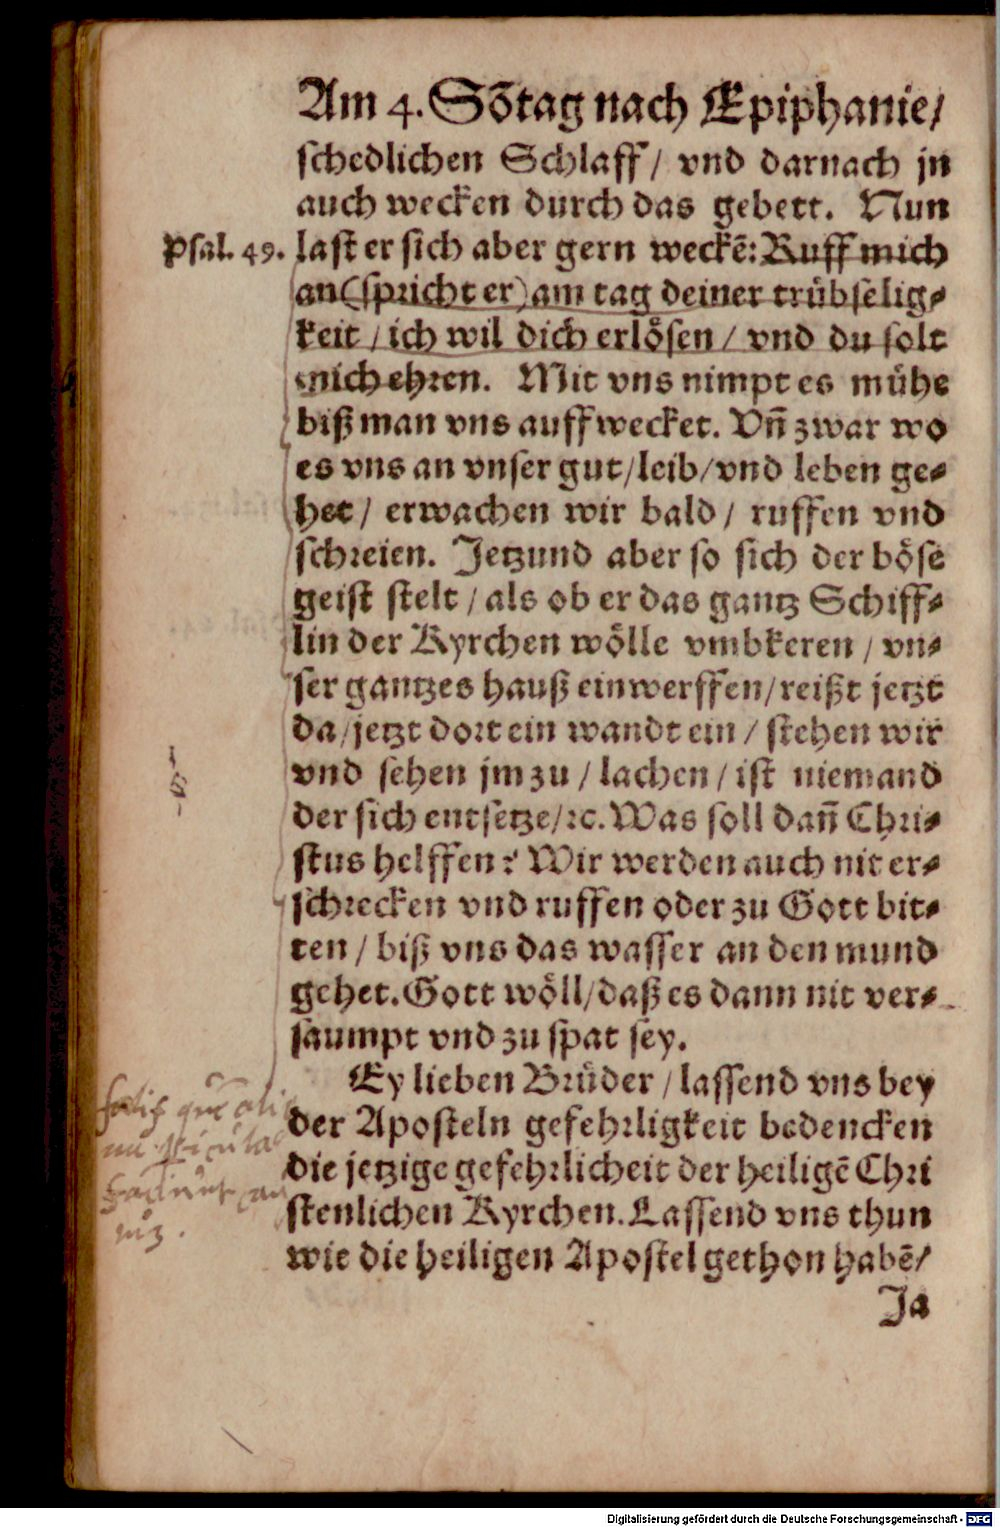 Am 4. Sõtag nach Epiphanie/
schedlichen Schlaff/ vnd darnach jn
auch wecken durch das gebett. Nun
Psal. 49. last er sich aber gern weckẽ: Ruff mich
an (spricht er) am tag deiner trübselig⸗
keit / ich wil dich erlösen / vnd du solt
mich ehren. Mit vns nimpt es mühe
biß man vns auffwecket. Vñ zwar wo
es vns an vnser gut/leib/vnd leben ge⸗
het / erwachen wir bald / ruffen vnd
schreien. Jetzund aber so sich der böse
geist stelt / als ob er das gantz Schiff⸗
lin der Kyrchen wölle vmbkeren / vn⸗
ser gantzes hauß einwerffen/reißt jetzt
da/jetzt dort ein wandt ein / stehen wir
vnd sehen jm zu / lachen / ist niemand
der sich entsetze/ꝛc. Was soll dañ Chri⸗
stus helffen? Wir werden auch nit er⸗
schrecken vnd ruffen oder zu Gott bit⸗
ten / biß vns das wasser an den mund
gehet. Gott wöll/daß es dann nit ver⸗
saumpt vnd zu spat sey.
Ey lieben Brüder / lassend vns bey
der Aposteln gefehrligkeit bedencken
die jetzige gefehrlicheit der heiligẽ Chri
stenlichen Kyrchen. Lassend vns thun
wie die heiligen Apostel gethon habẽ/
Ja
Digitalisierung gefördert durch die Deutsche Forschungsgemeinschaft - DFG